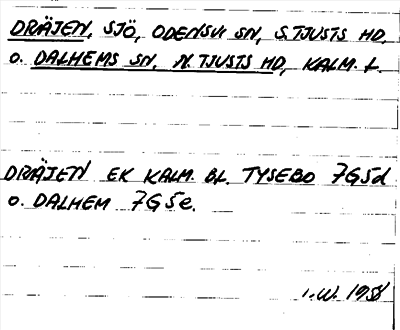 DRÄJEN, SJÖ, ODENSVI SN, S. TJUSTS HD,
O. DALHEMS SN, N. TJUSTS HD, KALM. L.
DRÄJEN EK KALM. BL. TYSEBO 7G5d
O. DALHEM 7G5e.
I.W. 195